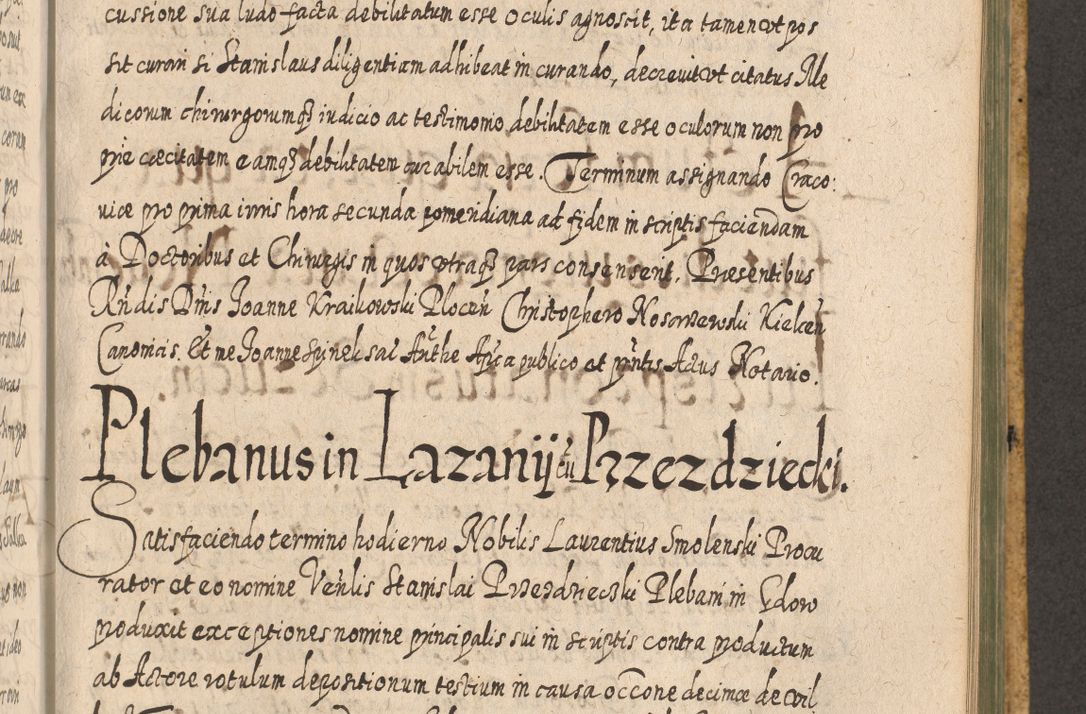 cussione sua ludo facta debilitatum esse oculis agnoscit, ita tamen vt pos
sit curari si Stanislaus diligentiam adhibeat in curando, decreuit vt citatus Me
dicorum chirurgorumq3 iudicio ac testimonio debilitatem esse oculorum non pro
prie cæcitatem eamq3 debilitatem curabilem esse. Terminum assignando Craco:
uiæ pro prima iuris hora secunda pomeridiana ad fidem in scriptis faciendam
à Doctoribus et Chirurgis in quos vtraq3 pars consenserit. Præsentibus
Rndis Dnis Joanne Kraikowski Plocen Christophero Nosarzewski Kielcen
Canonicis. Et me Joanne Sjnek sac Authe Aplca publico et pntis Actus Notario.
Plebanus in Lazanij cu Przezdziecki.
Satisfaciendo termino hodierno Nobilis Laurentius Smolenski Procu
rator et eo nomine Venlis Stanislai Przezdziecki Plebani in Gdow
produxit exceptiones nomine principalis sui in scriptis contra productum
ab Actore rotulum depositionum testium in causa occone decimæ de vil